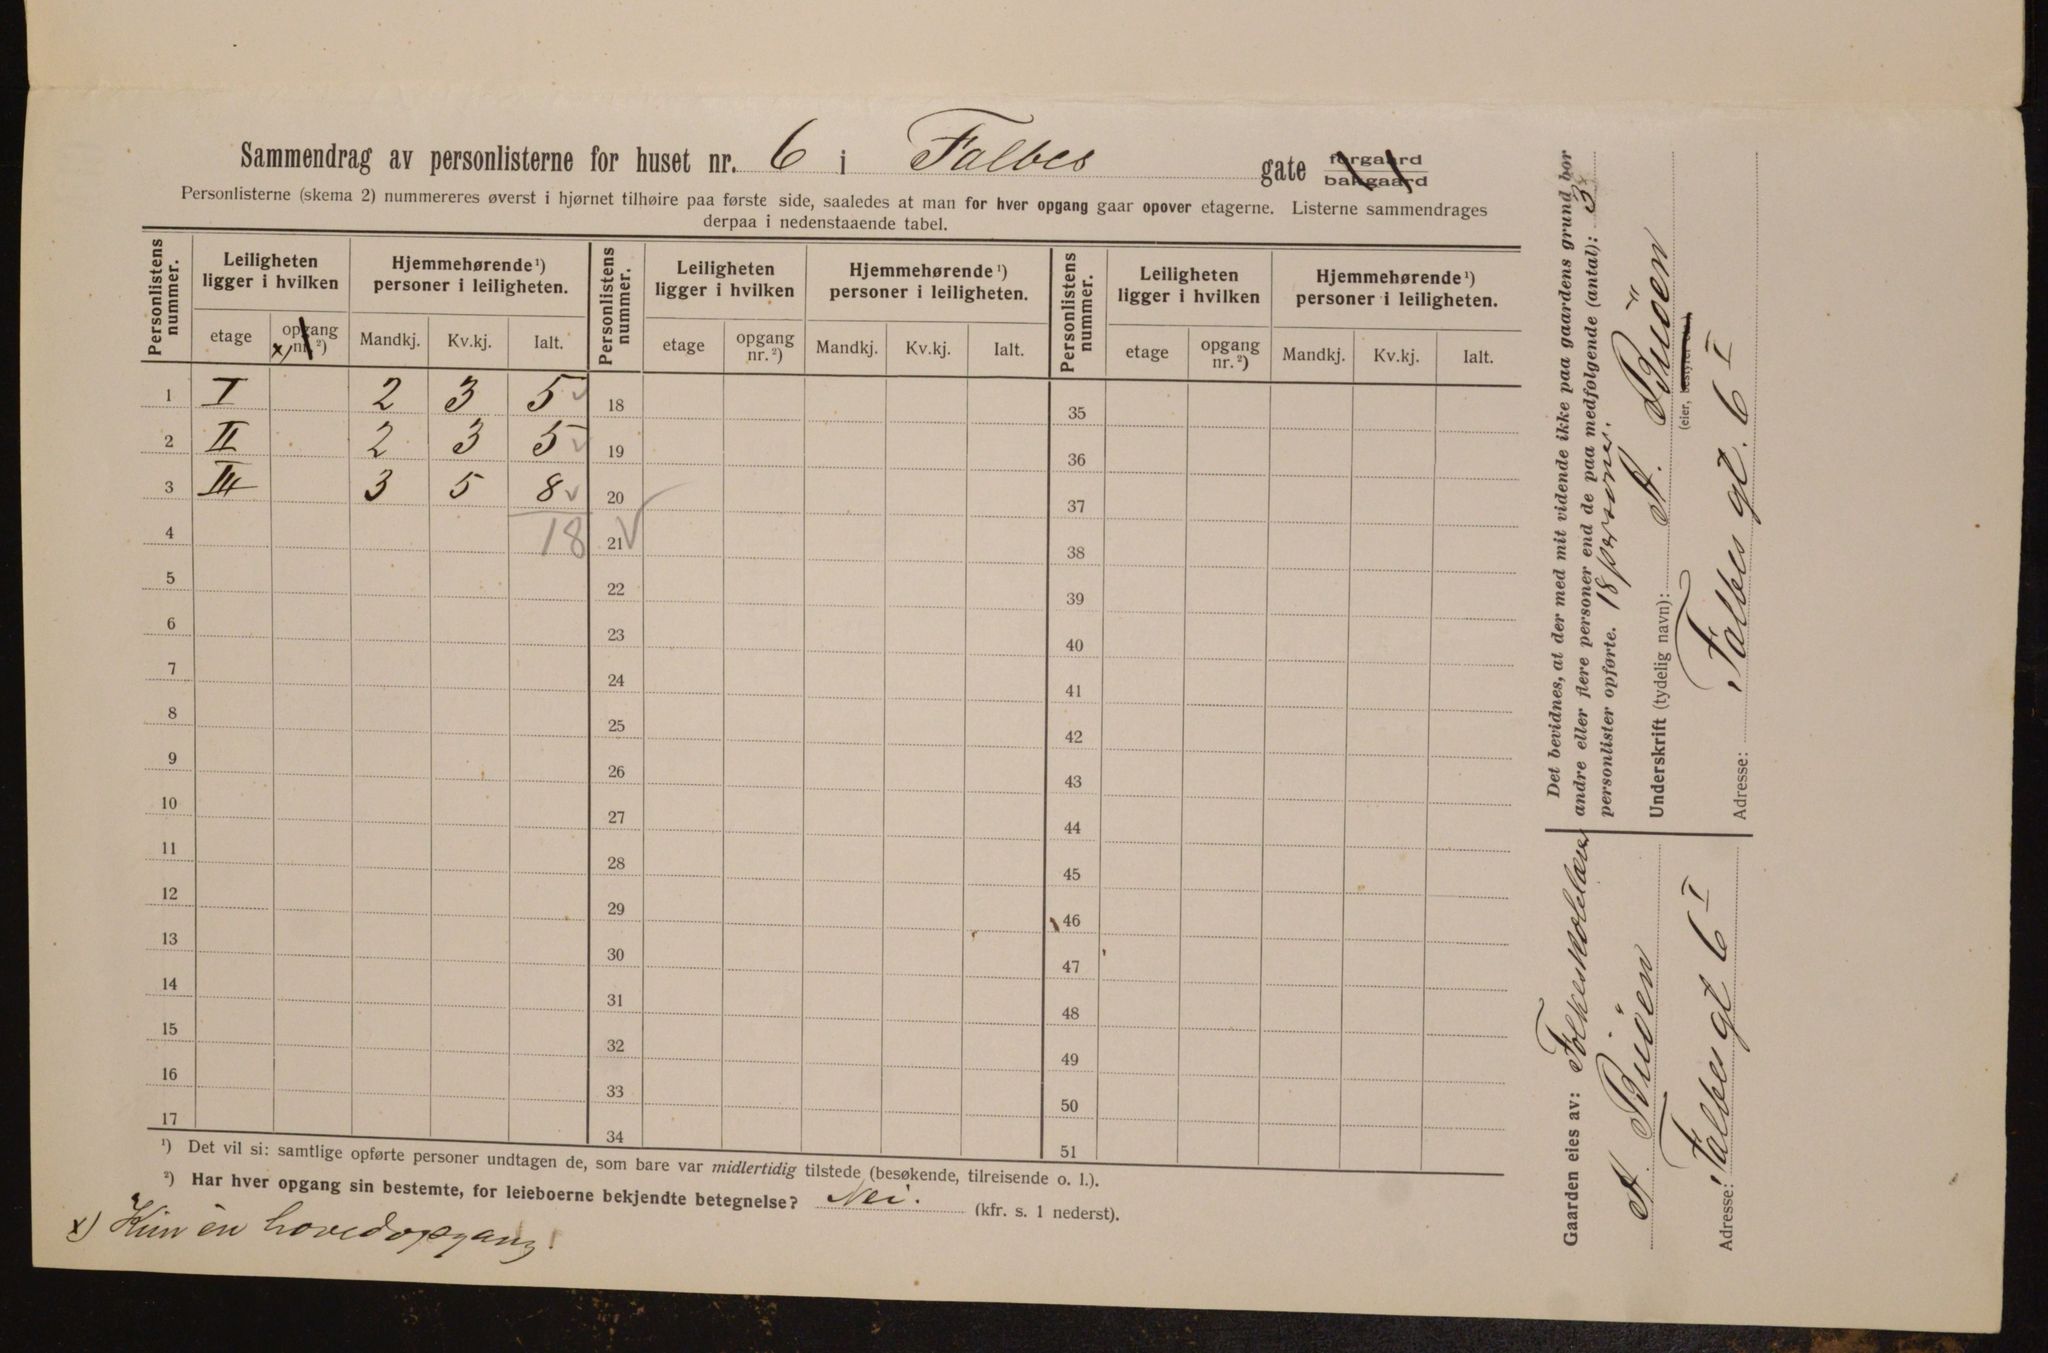 Sammendrag av personlisterne for huset nr. 6 i Falbes gate forgaard bakgaard
Personlisterne (skema 2) nummereres øverst i hjørnet tilhøire paa første side, saaledes at man for hver opgang gaar opover etagerne. Listerne sammendrages
derpaa i nedenstaaende tabel.
Personlistens nummer. Leiligheten ligger i hvilken Hjemmehørende ¹) personer i leiligheten. Personlistens nummer. Leiligheten ligger i hvilken Hjemmehørende ¹) personer i leiligheten. Personlistens nummer. Leiligheten ligger i hvilken Hjemmehørende ¹) personer i leiligheten.
etage opgang nr. ²) x) Mandkj. Kv.kj. Ialt. etage opgang nr. ²) Mandkj. Kv.kj. Ialt. etage opgang nr. ²) Mandkj. Kv.kj. Ialt.
1 I 2 3 5 18 35
2 II 2 3 5 19 36
3 III 3 5 8 20 37
4 18 21 38
5 22 39
6 23 40
7 24 41
8 25 42
9 26 43
10 27 44
11 28 45
12 29 46
13 30 47
14 31 48
15 32 49
16 33 50
17 34 51
¹) Det vil si: samtlige opførte personer undtagen de, som bare var midlertidig tilstede (besøkende, tilreisende o. l.).
²) Har hver opgang sin bestemte, for leieboerne bekjendte betegnelse? Nei. (kfr. s. 1 nederst).
x) Kun én hovedopgang!
Det bevidnes, at der med mit vidende ikke paa gaardens grund bor
andre eller flere personer end de paa medfølgende (antal): 3
personlister opførte. 18 personer.
Underskrift (tydelig navn): A. Büöen
(eier,
Adresse: Falbes gt. 6 I
Gaarden eies av: Folkeskolelærer
A. Büöen
Adresse: Falbes gt 6 I